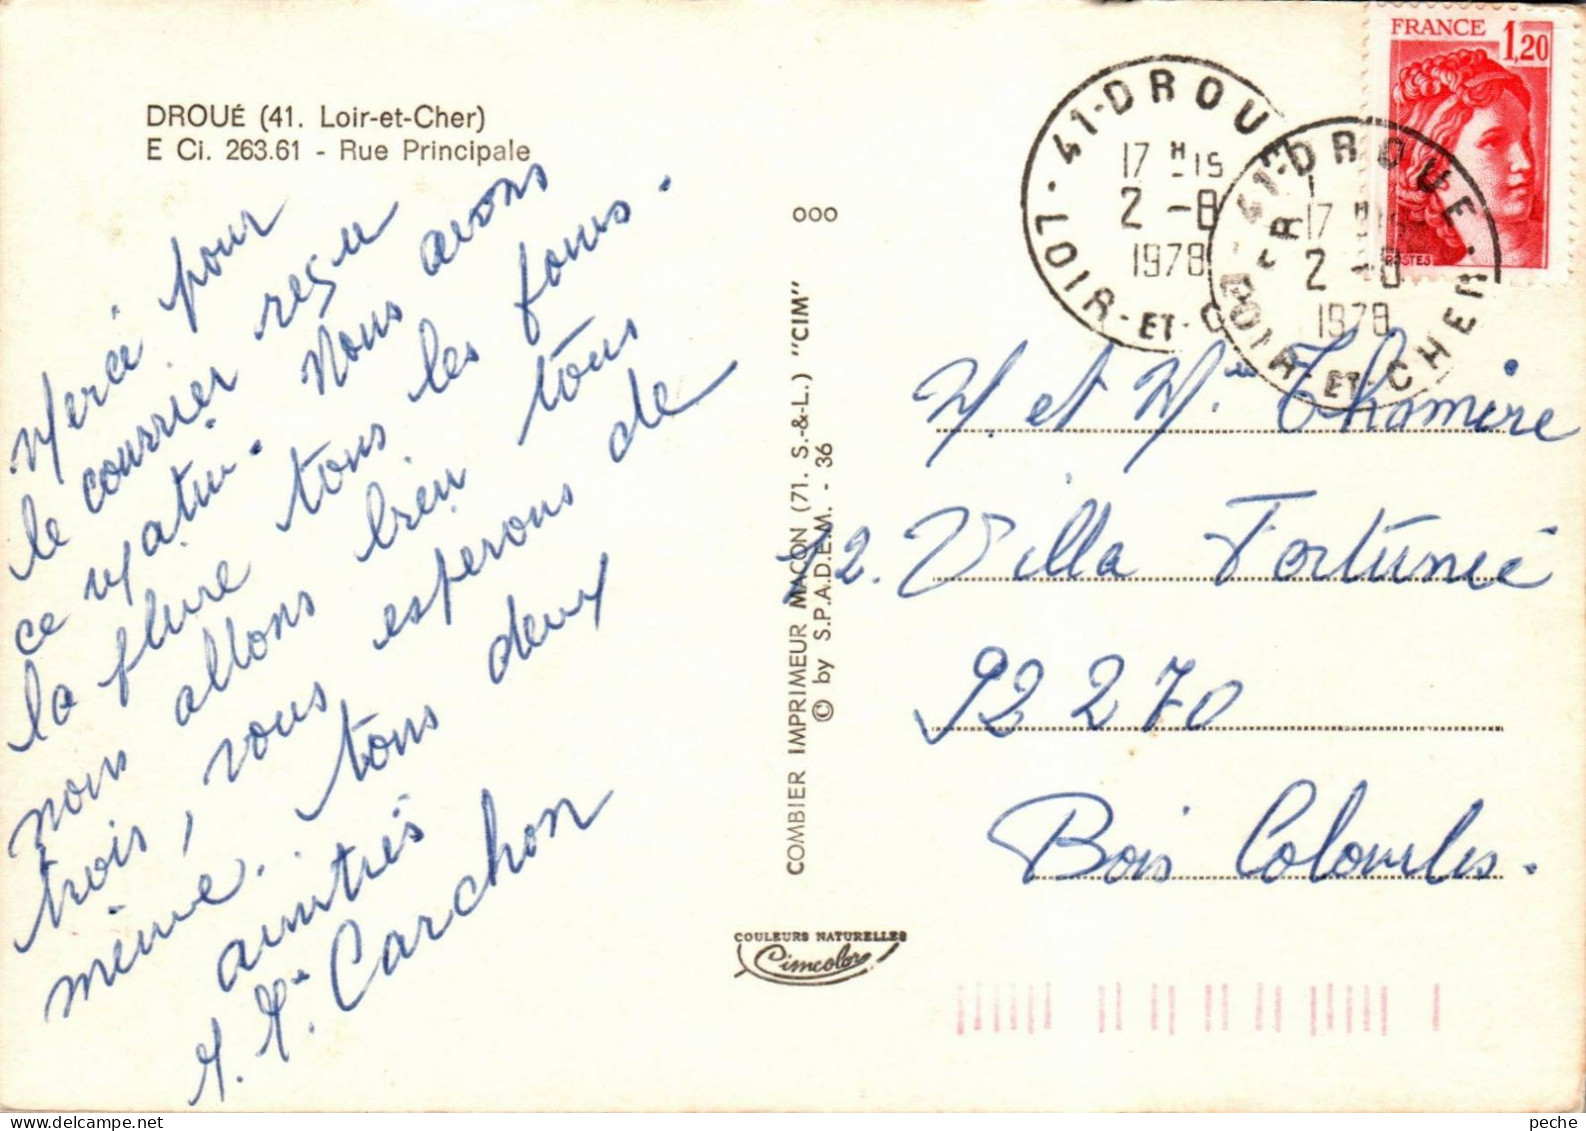 DROUÉ (41. Loir-et-Cher)
E Ci. 263.61 - Rue Principale
Merci pour
le courrier reçu
ce Matin. Nous avons
la pluie tous les jours.
nous allons bien tous
trois, vous esperons de
même. tous deux
amitiés
M. Me Carchon
ooo
COMBIER IMPRIMEUR MACON (71. S.-&-L.) "CIM"
© by S.P.A.D.E.M. - 36
COULEURS NATURELLES
Cimcolor
FRANCE 1,20
POSTES
41-DROUE
17 H 15
2 -8
1978
LOIR-ET-C
41-DROUE
17 H 15
2 -8
1978
LOIR-ET-CHER
M. et Mme Thomire
12. Villa Fortunée
92270
Bois Colombes.
peche